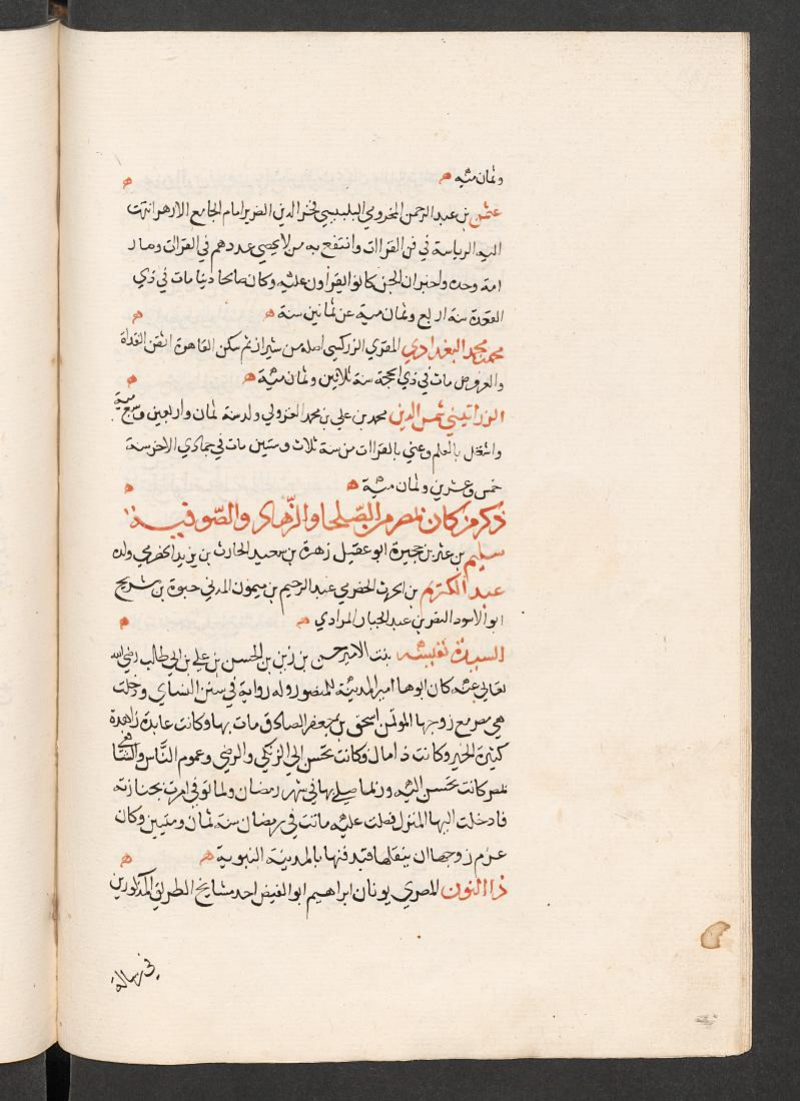 وثمان مئيه ه ه
عثمن بن عبد الرحمن المخزومي البلبيسي فخر الدين الضرير امام الجامع الازهر انتهت
اليه الرياسة في فن القراات وانتفع به من لا يحصي عددهم في القراات وصار
امة وحده واخبر ان الجن كانوا يقراون عليه وكان صالحا دينا مات في ذي
القعدة سنة اربع وثمان مية عن ثمانين سنة ه ه
محمد بن محمد البغدادي المقري الزركسي اصله من شيراز ثم سكن القاهرة اتقن القداة
والعروض مات في ذي الحجة سنة ثلاثين وثمان مئية ه ه
الزراتيتي شمس الدين محمد بن علي بن محمد الغزولي ولد سنة ثمان واربعين وسبع مية
واشتغل بالعلم وعني بالقراات من سنة ثلاث وستين مات في جمادي الاخر سنة
خمس وعشرين وثمان مئية ه ه
ذكر من كان بمصر من الصلحا والزهاد والصوفية
سليم بن عتر بن جيرة ابو عقيل زهرة بن معبد الحارث بن يزيد الحضرمي ولده
عبد الكريم بن الحرث الحضرمي عبد الرحيم بن ميمون المدني حيوة بن شريح
ابو الاسود النضر بن عبد الجبار المرادي ه ه
السيدة نفيسه بنت الامير حسن بن زين بن الحسن بن علي بن ابي طالب رضي الله
تعالي عنه كان ابوها امير المدينة للمنصور وله رواية في سنن النساي ودخلت
هي مصر مع زوجها المؤتمن اسحق بن جعفر الصادق مات بها وكانت عابدة زاهدة
كثيرة الخير وكانت ذا مال وكانت تحسن الي الزمني والمرضي وعموم الناس والشافعي
بمصر كانت تحسن اليه وربما صلي بها في شهر رمضان ولما توفي امرت بجنازته
فادخلت اليها المنزل فصلت عليه ماتت في رمضان سنة ثمان ومئيين وكان
عزم زوجها ان ينقلها فيدفنها بالمدينة النبوية ه ه
ذا النون المصري يونان ابراهيم ابو الفيض احد مشايخ الطريق المذكورين
في رسالة